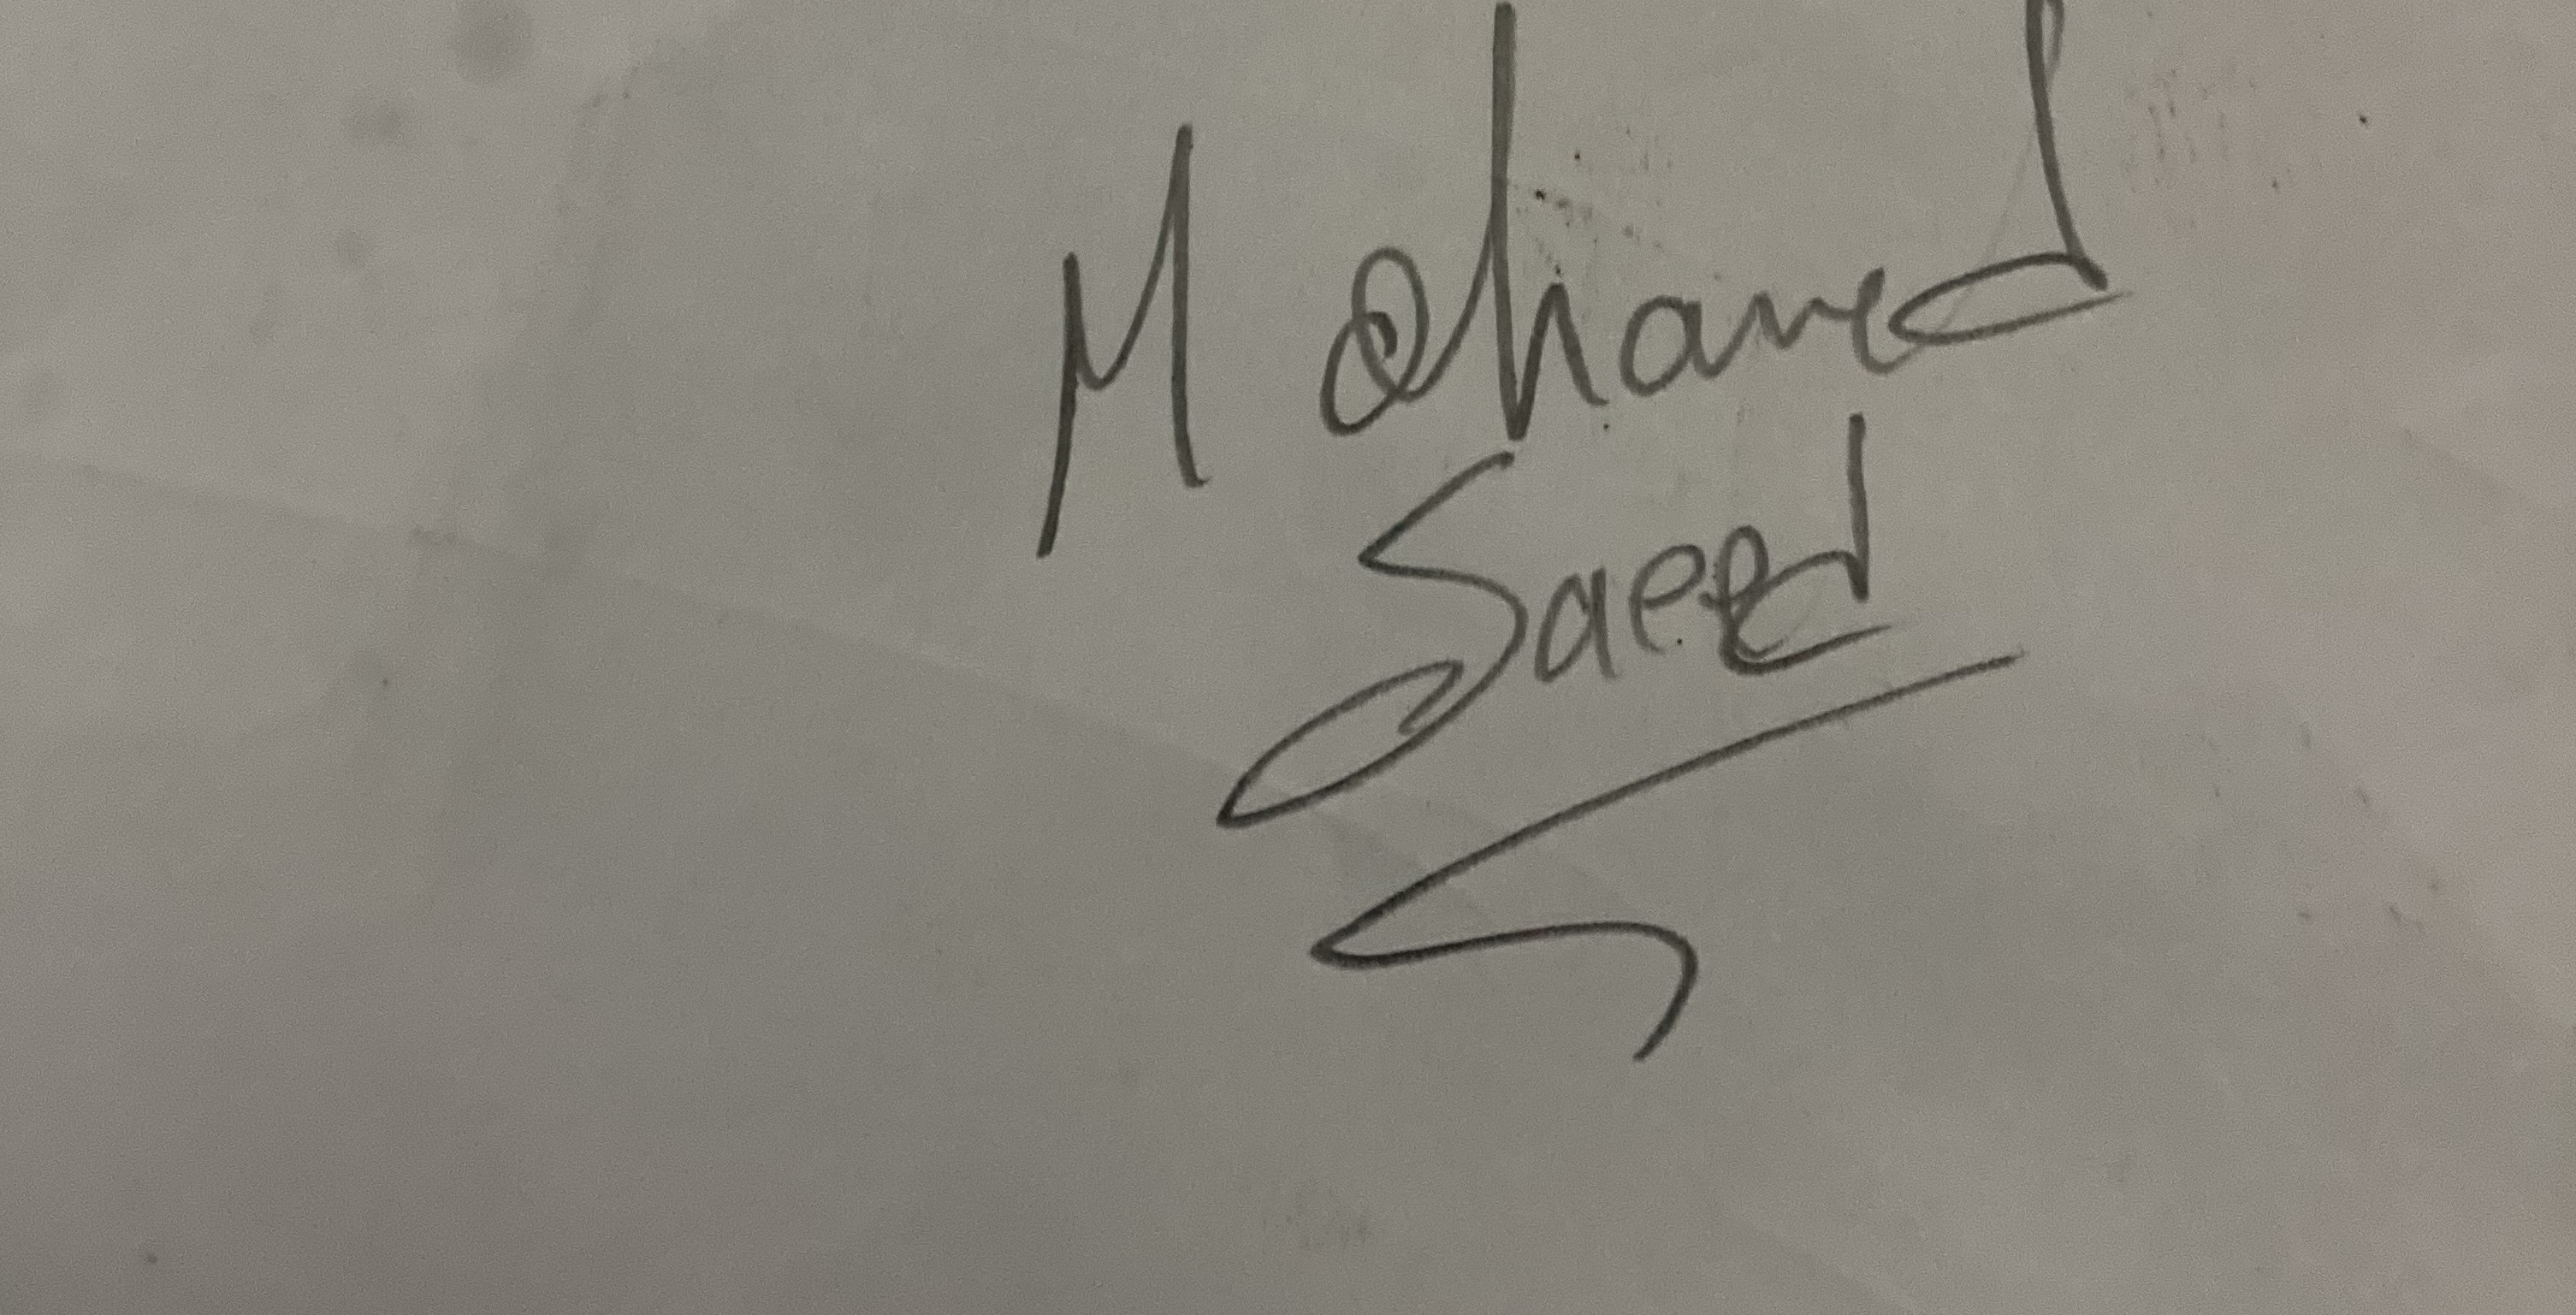 Mohamed
Saeed